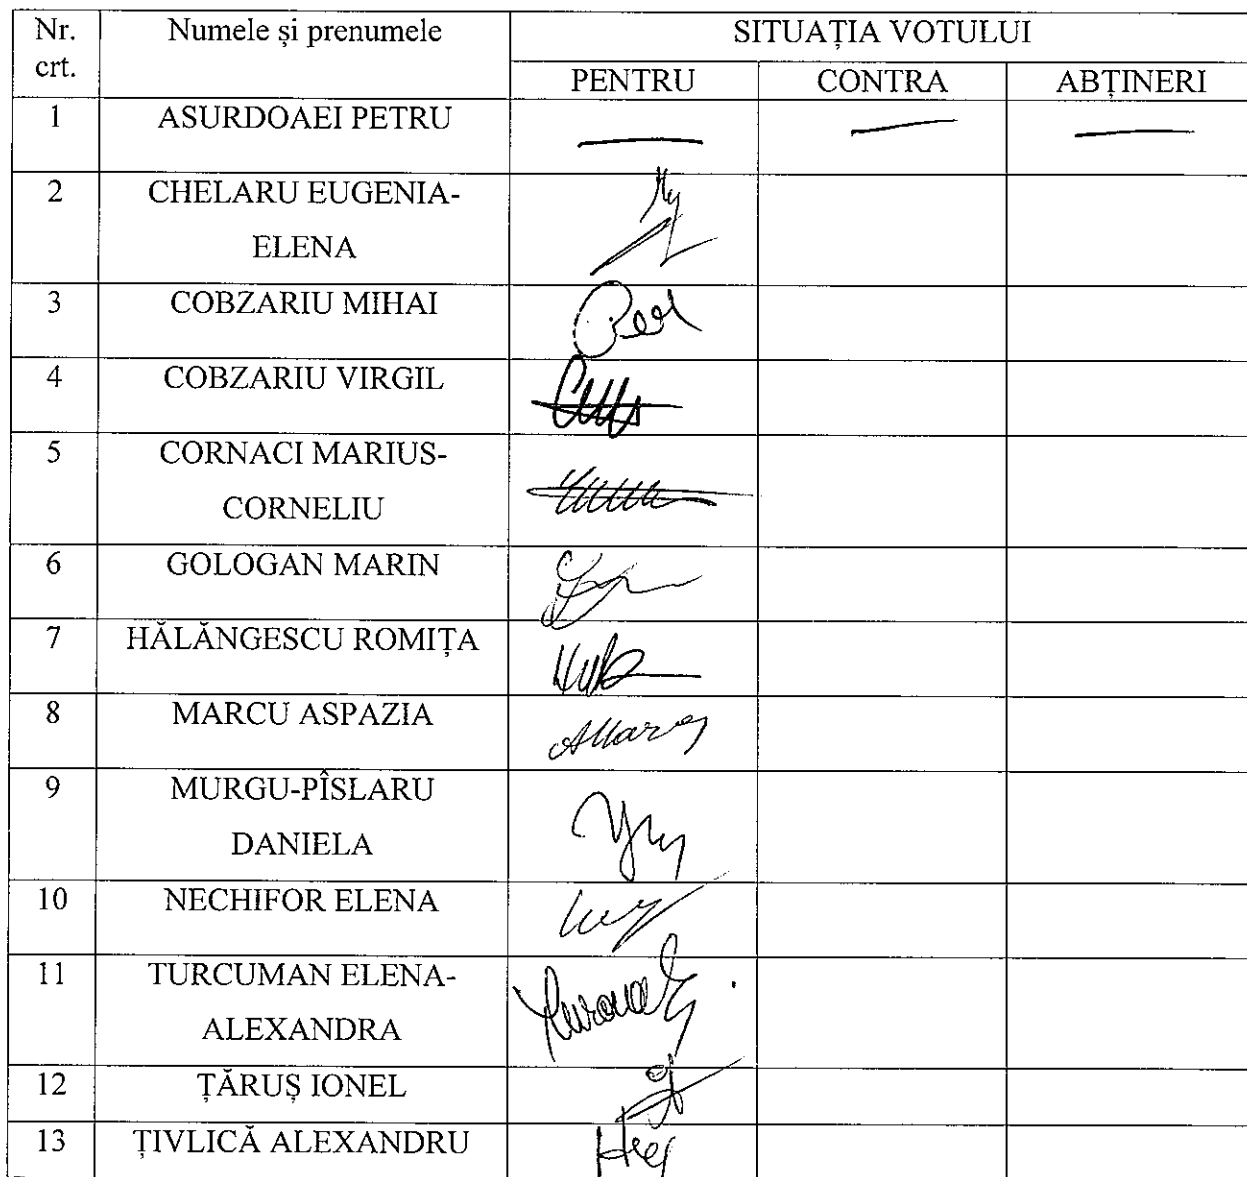 Nr. crt.
Numele și prenumele
SITUAȚIA VOTULUI
PENTRU
CONTRA
ABȚINERI
1 ASURDOAEI PETRU — — —
2 CHELARU EUGENIA-
ELENA
3 COBZARIU MIHAI
4 COBZARIU VIRGIL
5 CORNACI MARIUS-
CORNELIU
6 GOLOGAN MARIN
7 HĂLĂNGESCU ROMIȚA
8 MARCU ASPAZIA
9 MURGU-PÎSLARU
DANIELA
10 NECHIFOR ELENA
11 TURCUMAN ELENA-
ALEXANDRA
12 ȚĂRUȘ IONEL
13 ȚIVLICĂ ALEXANDRU